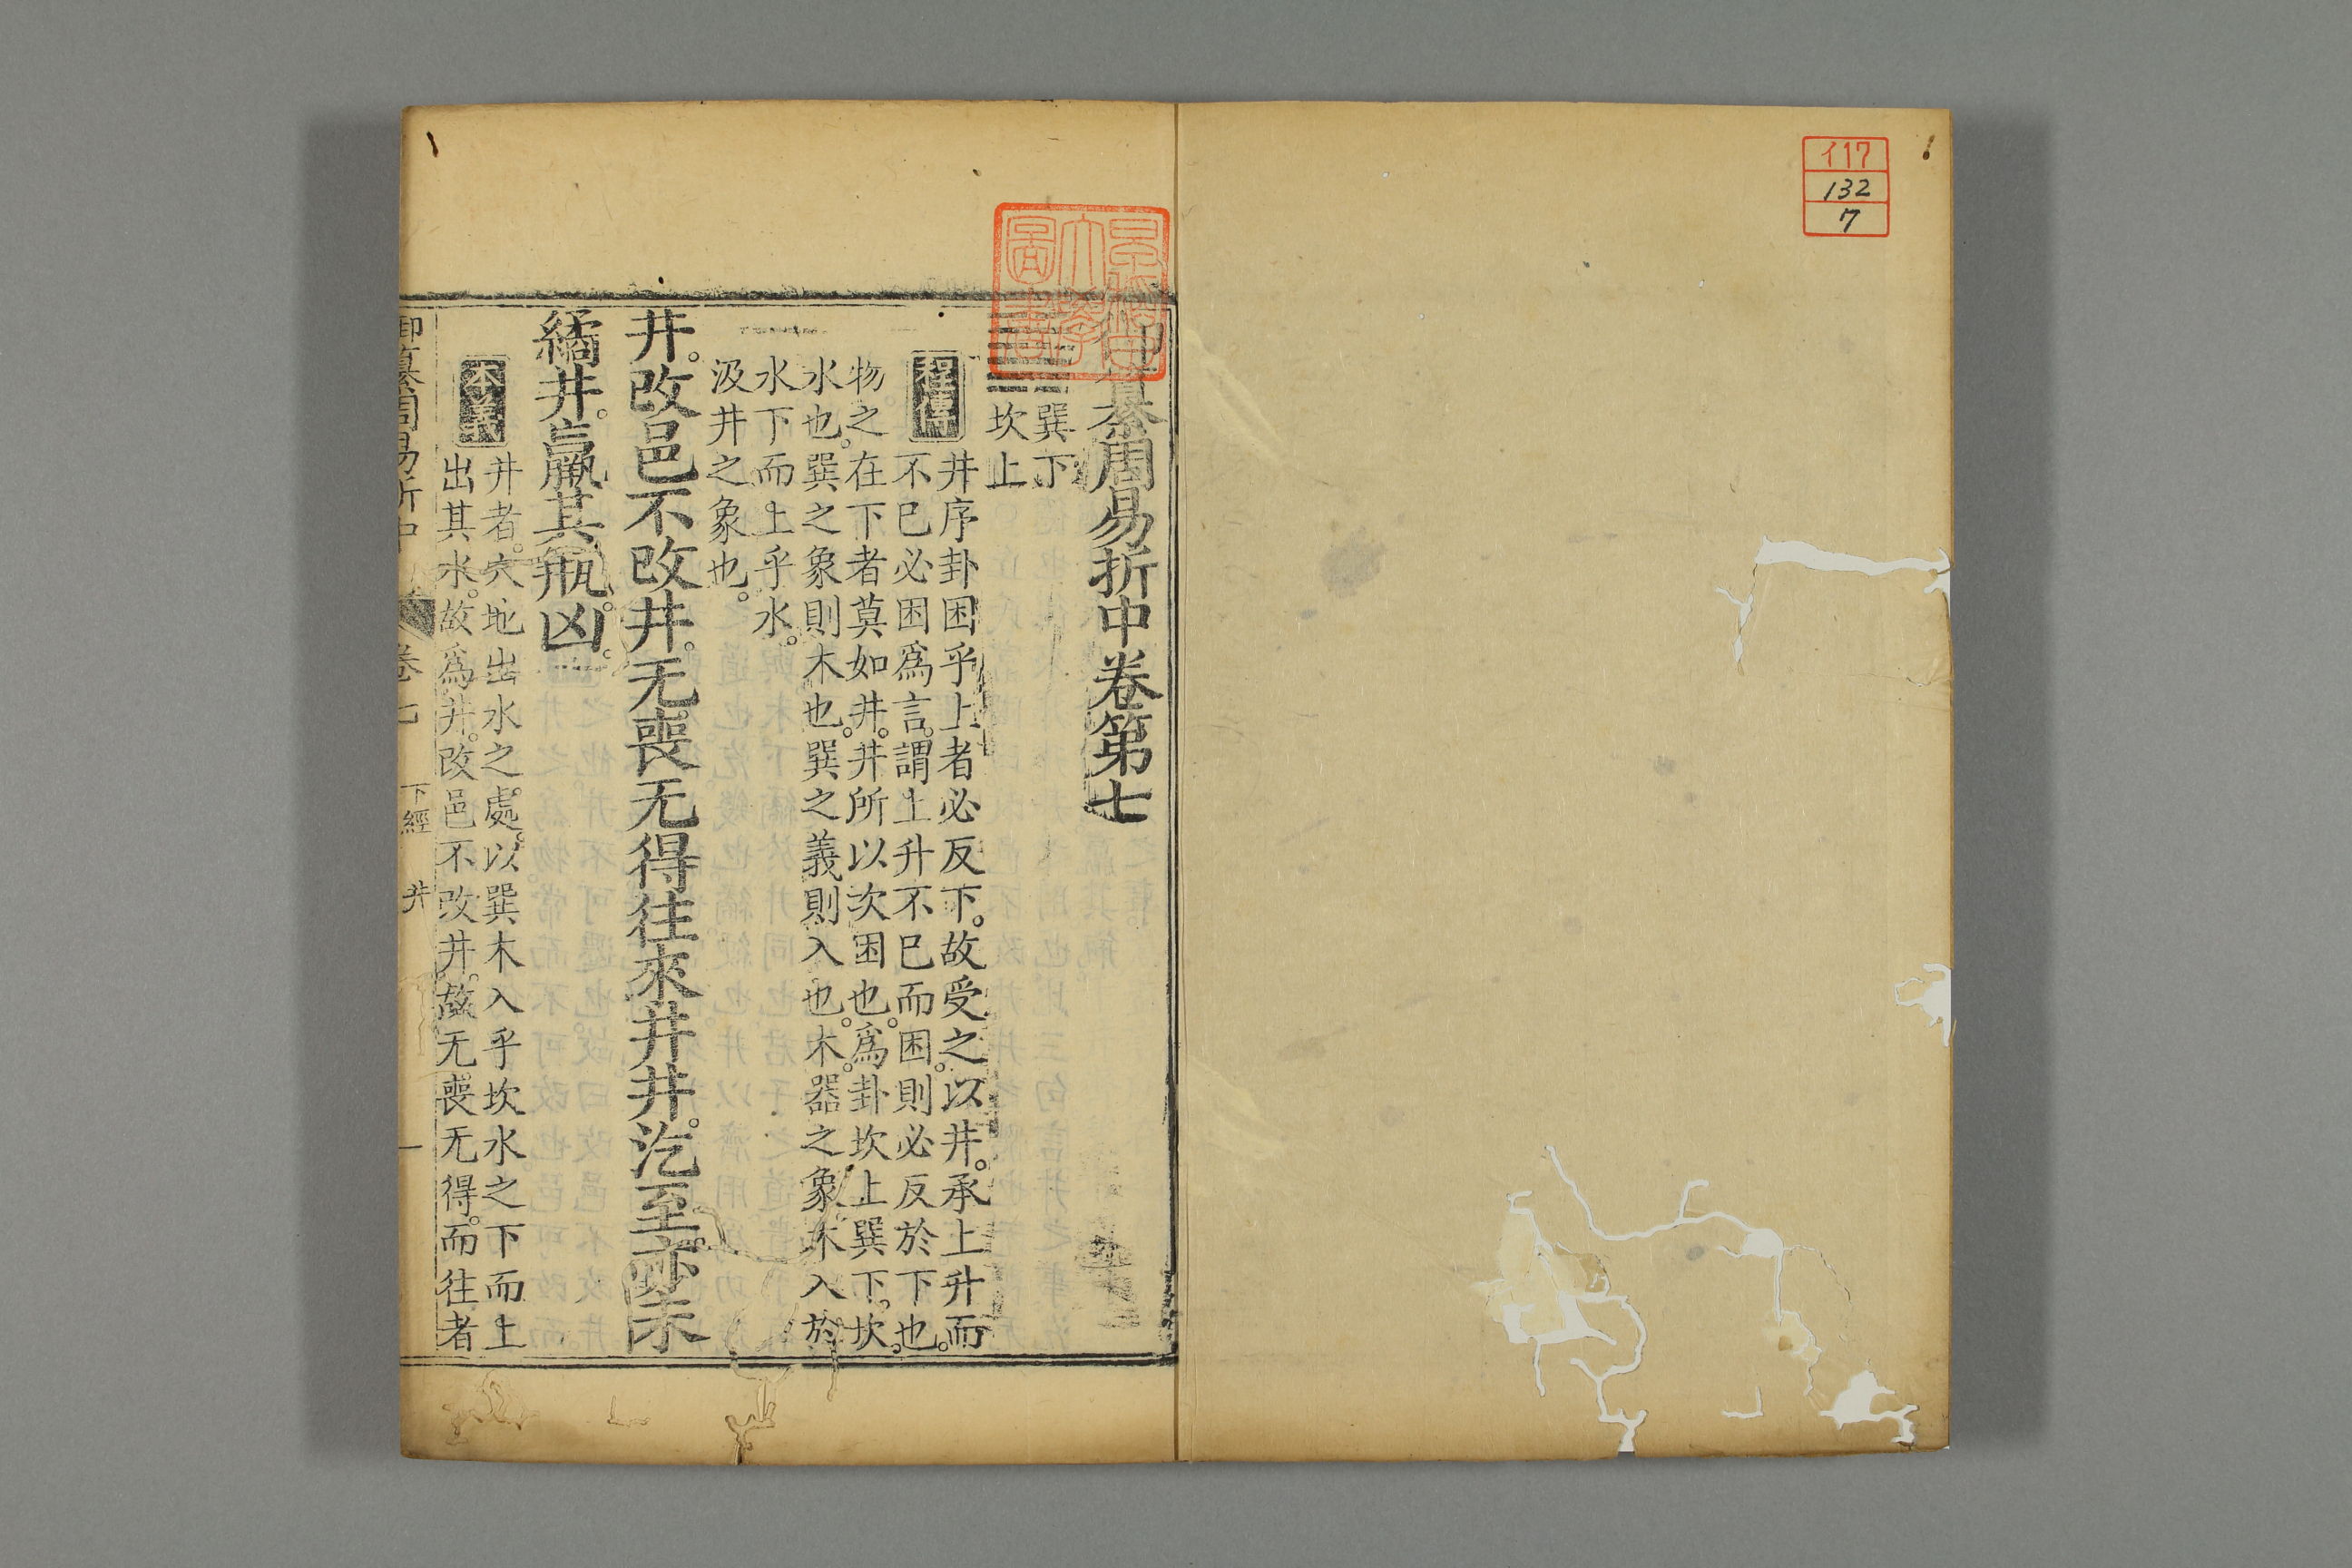 イ17
132
7
御纂周易折中卷第七
巽下
坎上
程傳
井序卦困乎上者必反下。故受之以井。承上升而
不已必困爲言。謂上升不已而困。則必反於下也。
物之在下者莫如井。井所以次困也。爲卦坎上巽下。坎。
水也。巽之象則木也。巽之義則入也。木。器之象。木入於
水下而上乎水。
汲井之象也。
井。改邑不改井。无喪无得往來井井。汔至。亦未
繘井。羸其瓶。凶。
本義
井者。穴地出水之處。以巽木入乎坎水之下而上
出其水。故爲井。改邑不改井。故无喪无得。而往者
御纂周易折中
卷七
下經 井
一